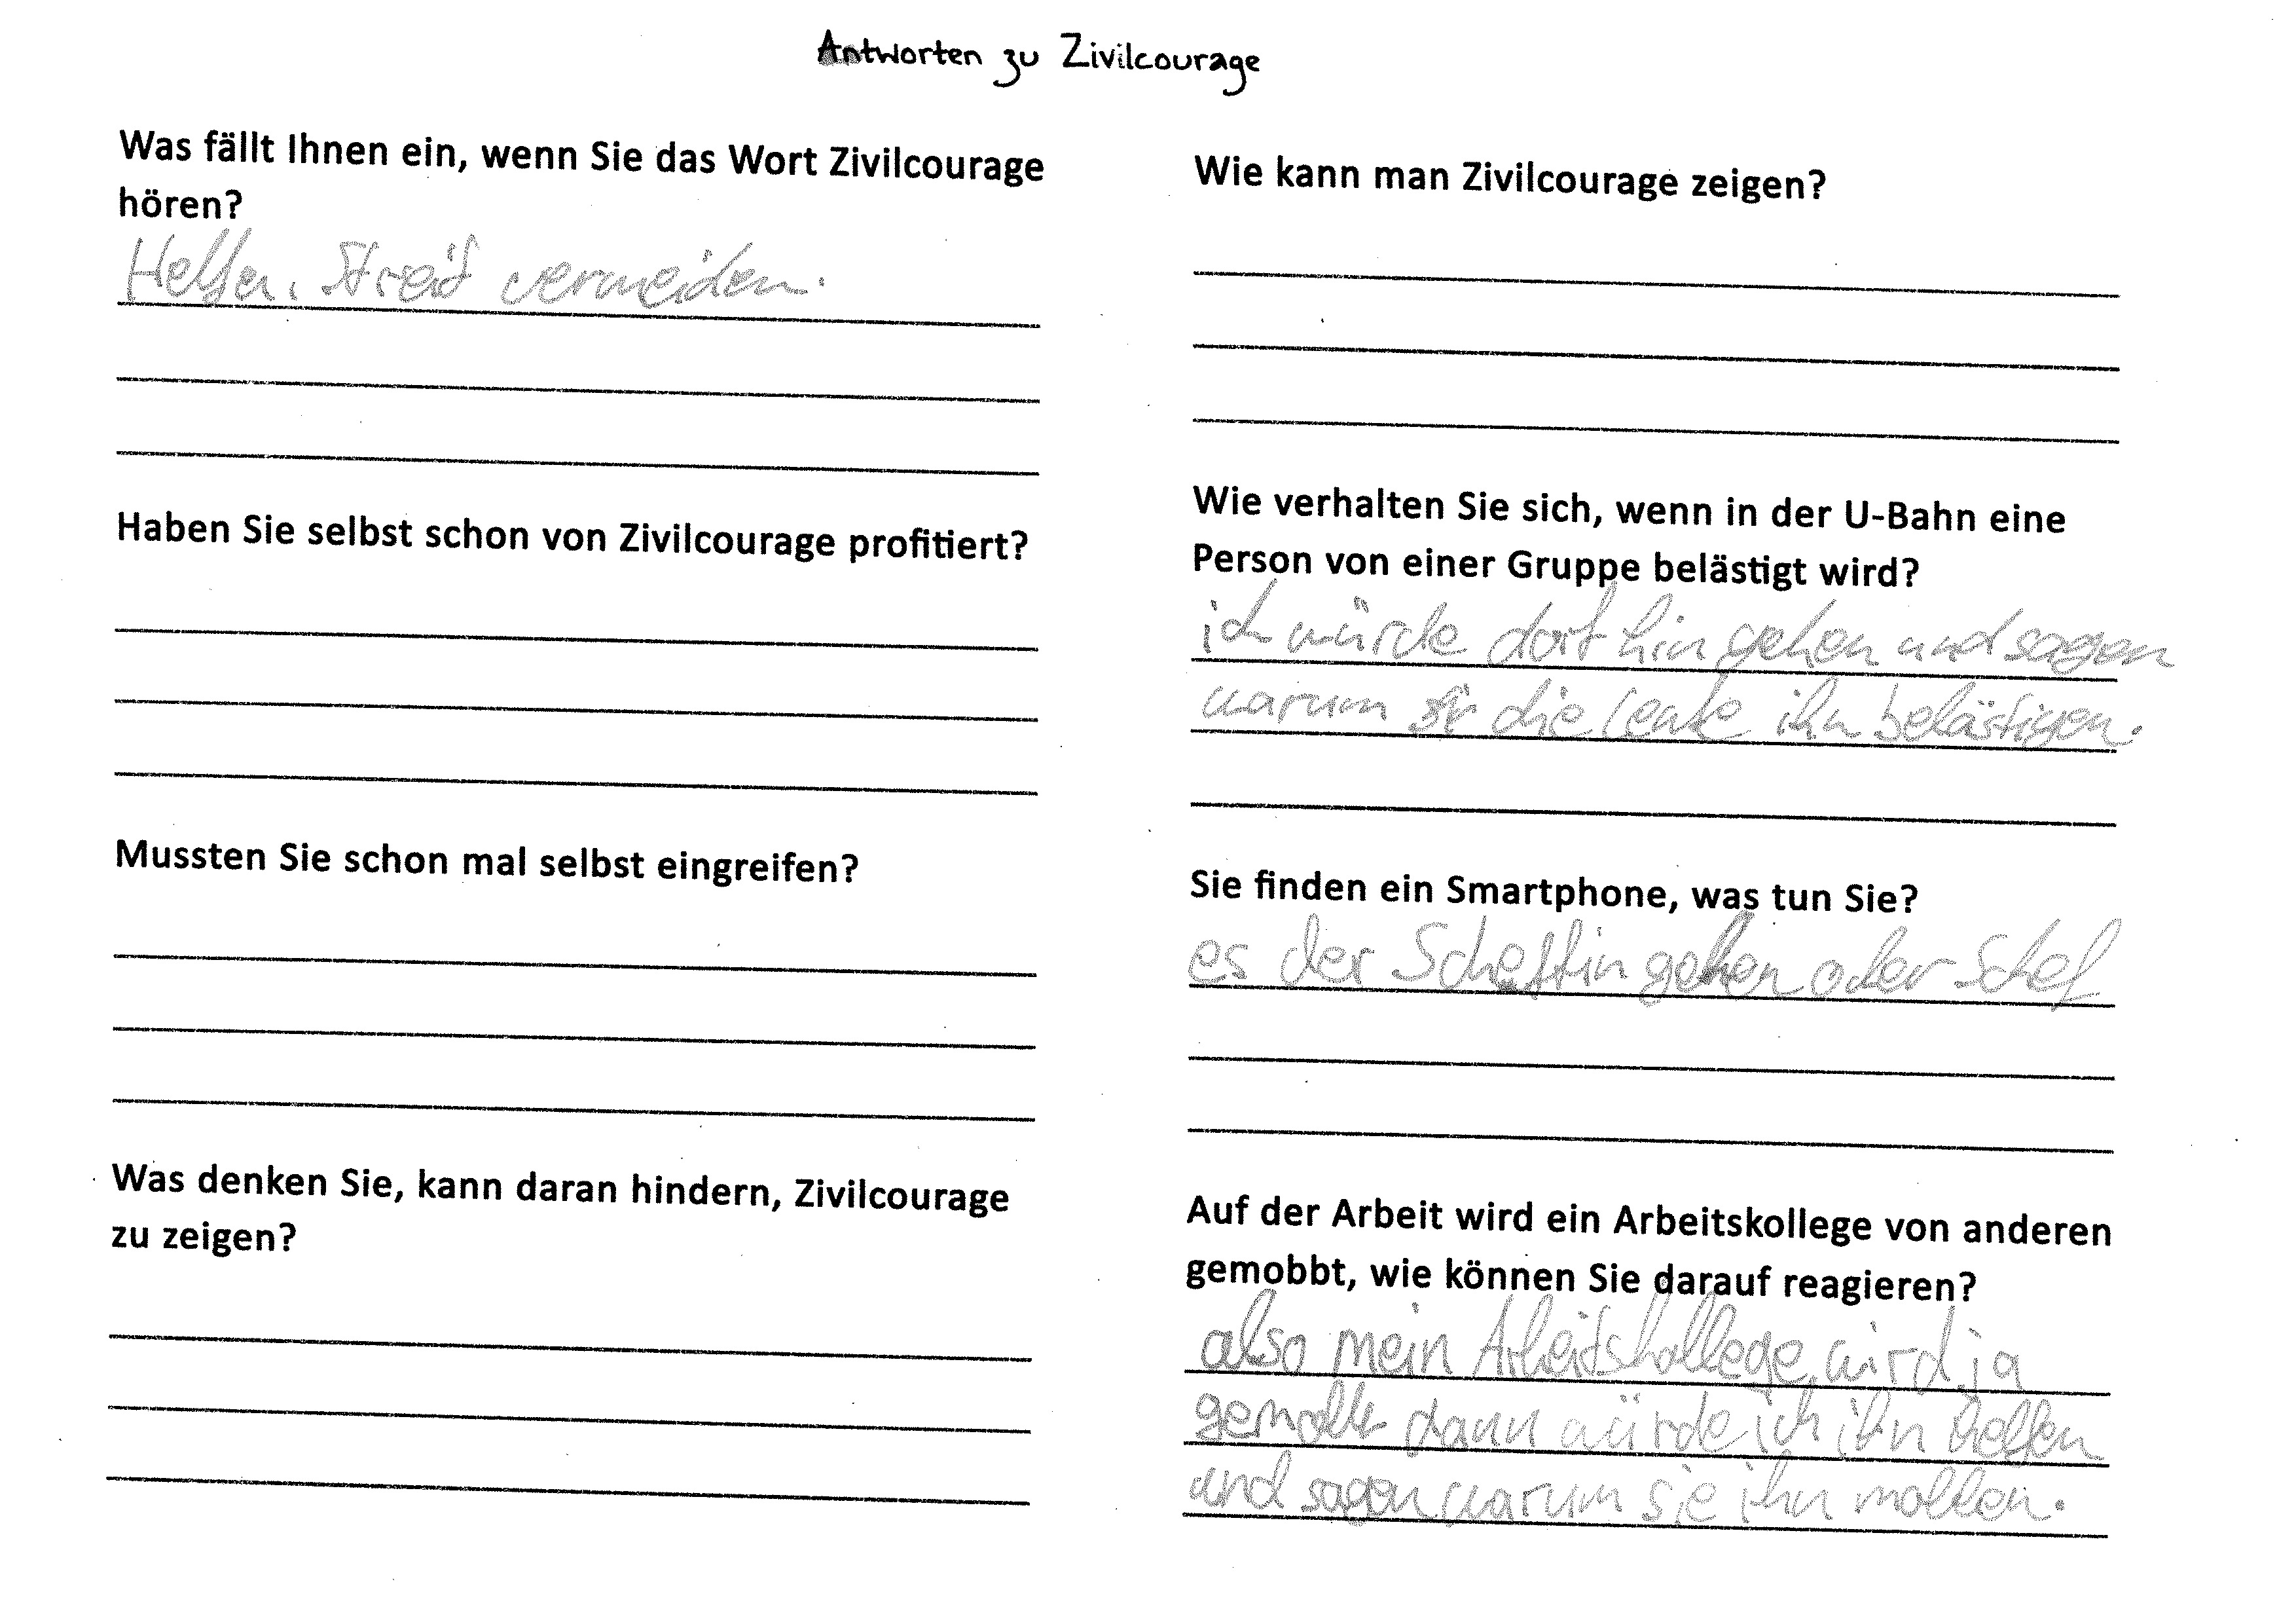 Antworten zu Zivilcourage
Was fällt Ihnen ein, wenn Sie das Wort Zivilcourage
hören?
Helfen. Streit vermeiden.
Haben Sie selbst schon von Zivilcourage profitiert?
Mussten Sie schon mal selbst eingreifen?
Was denken Sie, kann daran hindern, Zivilcourage
zu zeigen?
Wie kann man Zivilcourage zeigen?
Wie verhalten Sie sich, wenn in der U-Bahn eine
Person von einer Gruppe belästigt wird?
ich würde dort hin gehen und sagen
warum die leute ihn belästigen.
Sie finden ein Smartphone, was tun Sie?
es der Scheffin geben oder Schef
Auf der Arbeit wird ein Arbeitskollege von anderen
gemobbt, wie können Sie darauf reagieren?
also mein Arbeitskollege wird ja
gemobbt dann würde ich ihn helfen
und sagen warum sie ihn mobben.